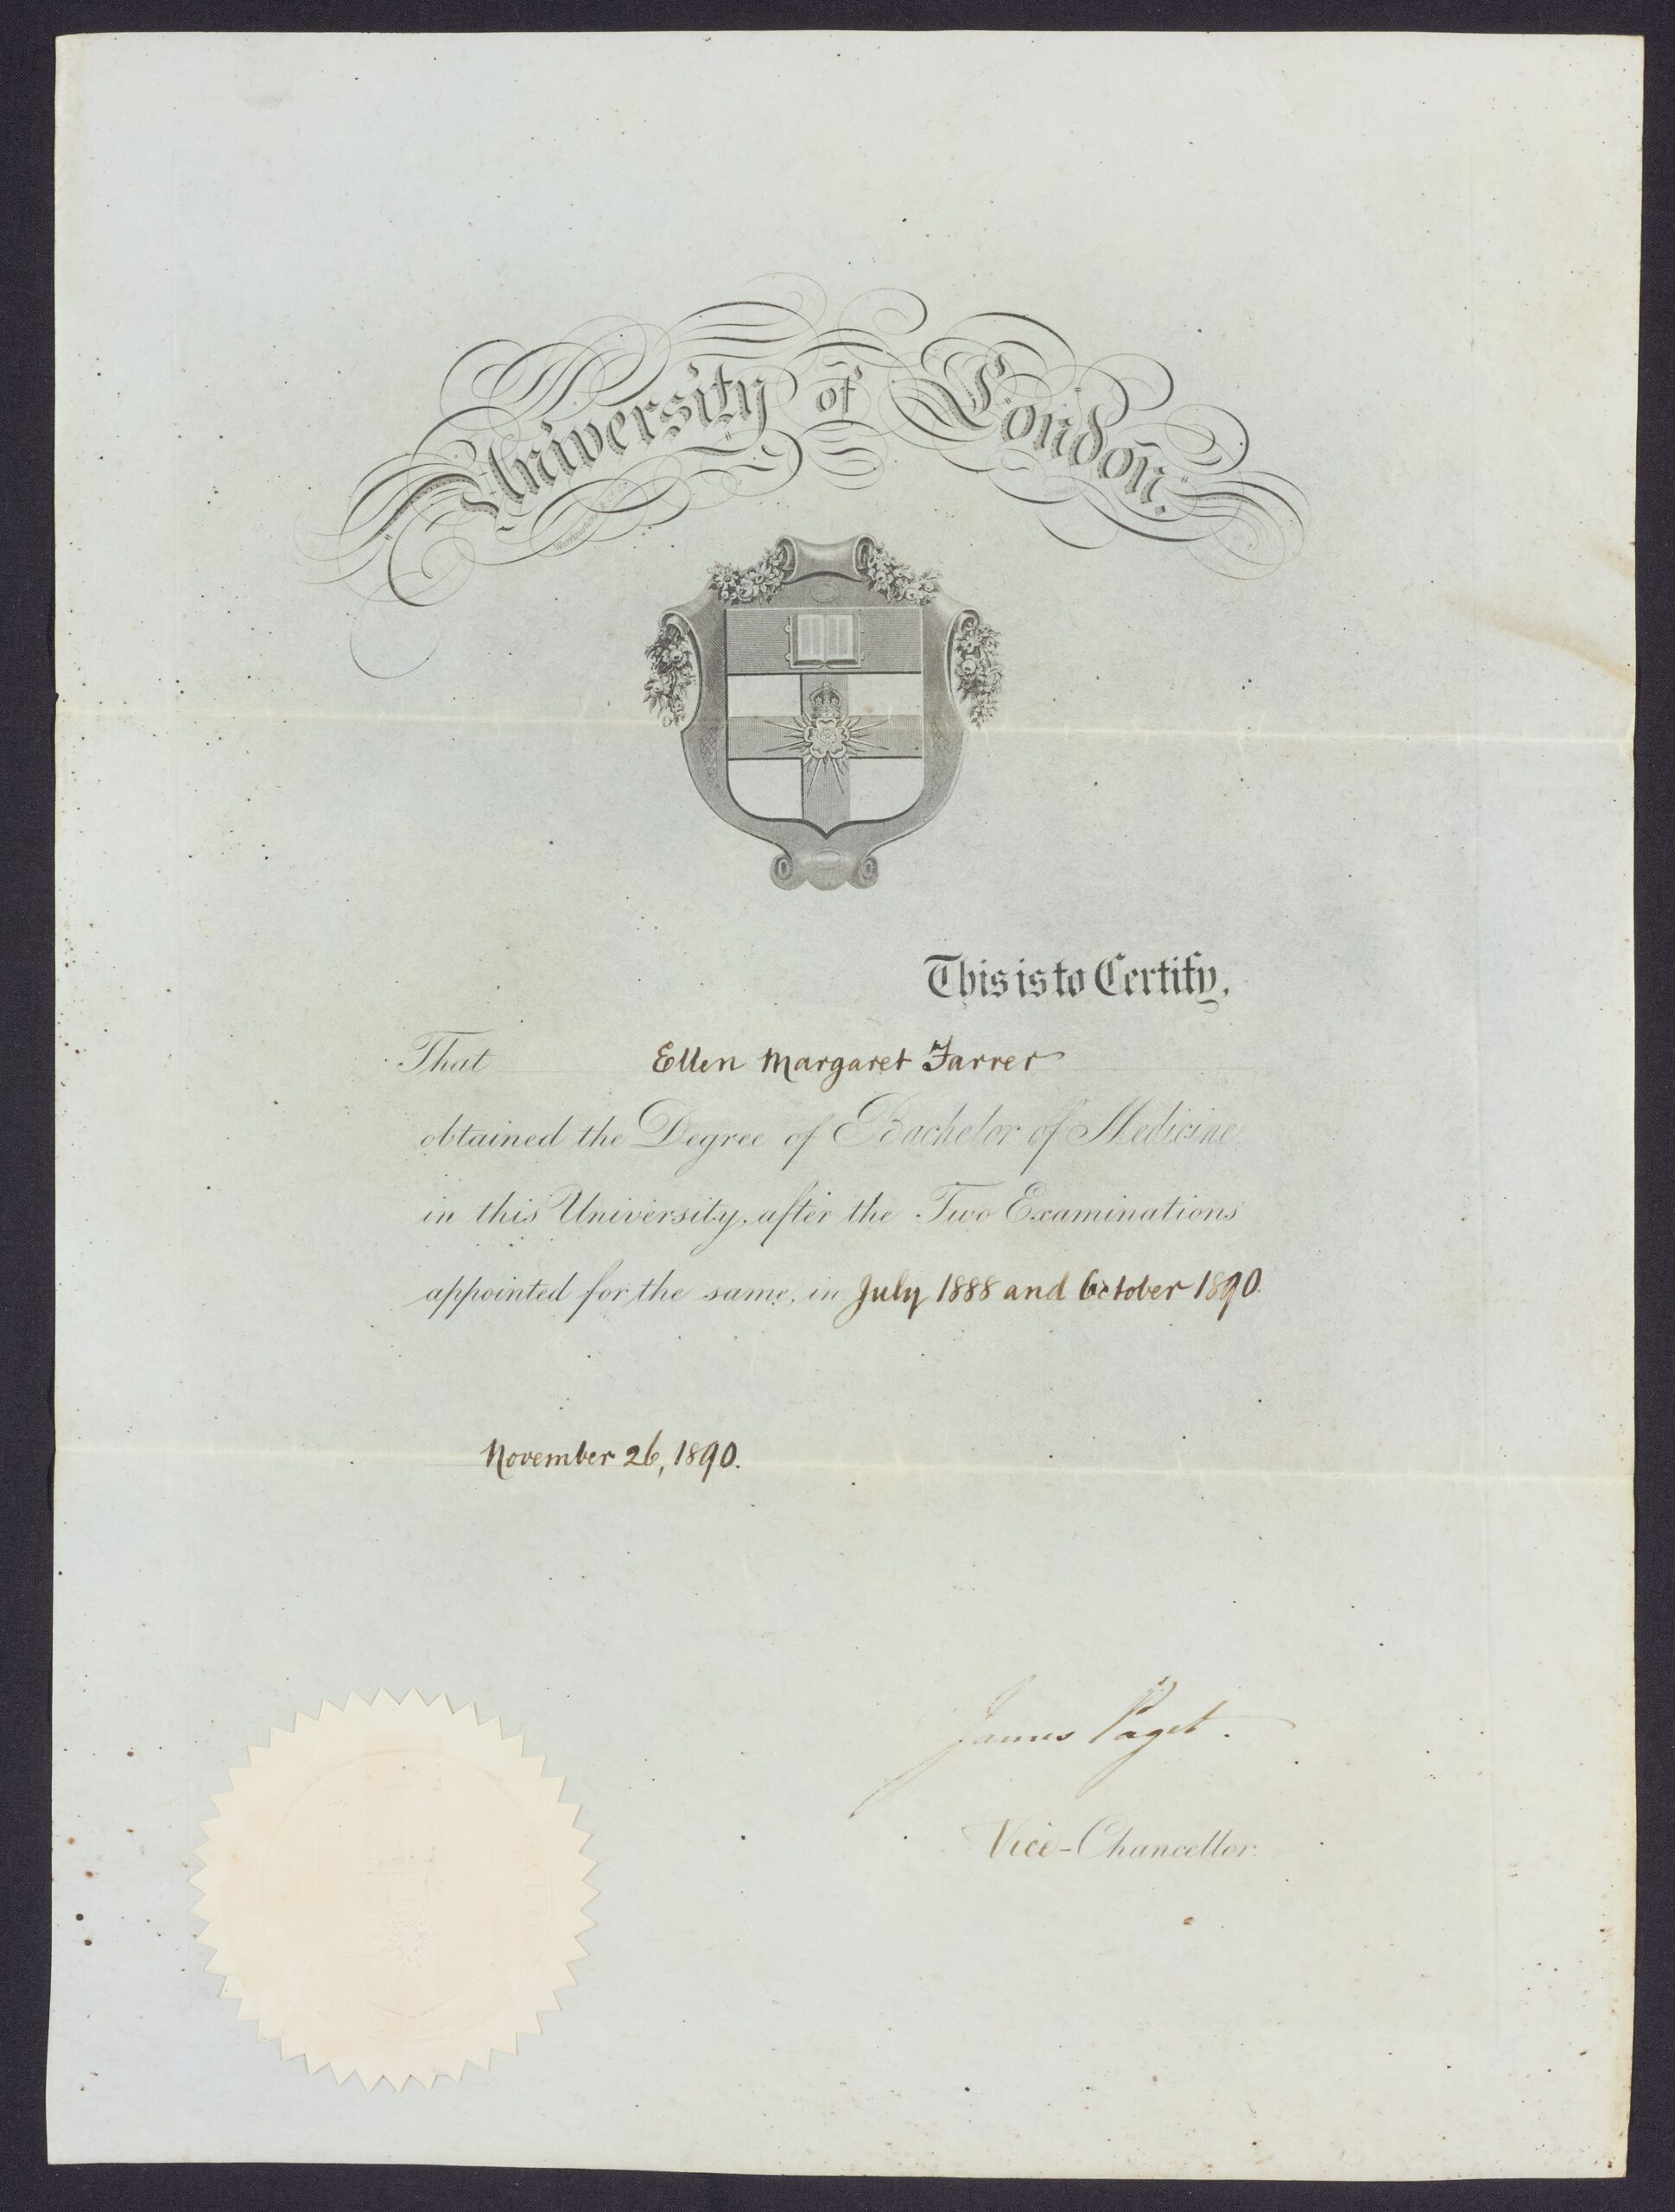 University of London.
This is to Certify,
That Ellen Margaret Farrer
obtained the Degree of Bachelor of Medicine
in this University, after the Two Examinations
appointed for the same, in July 1888 and October 1890.
November 26, 1890.
James Paget.
Vice-Chancellor.